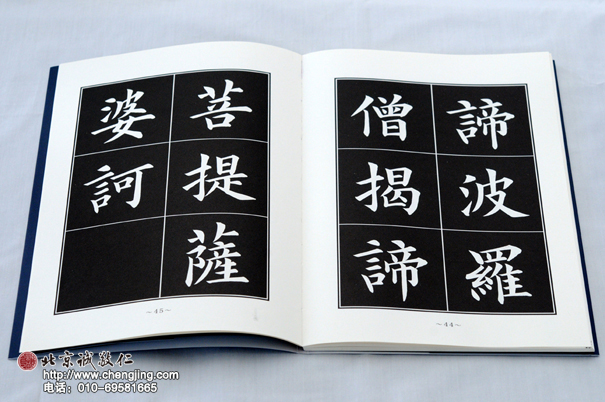 諦波羅
僧揭諦
~44~
菩提薩
婆訶
~45~
北京诚敬仁
http://www.chengjing.com
电话：010-69581665